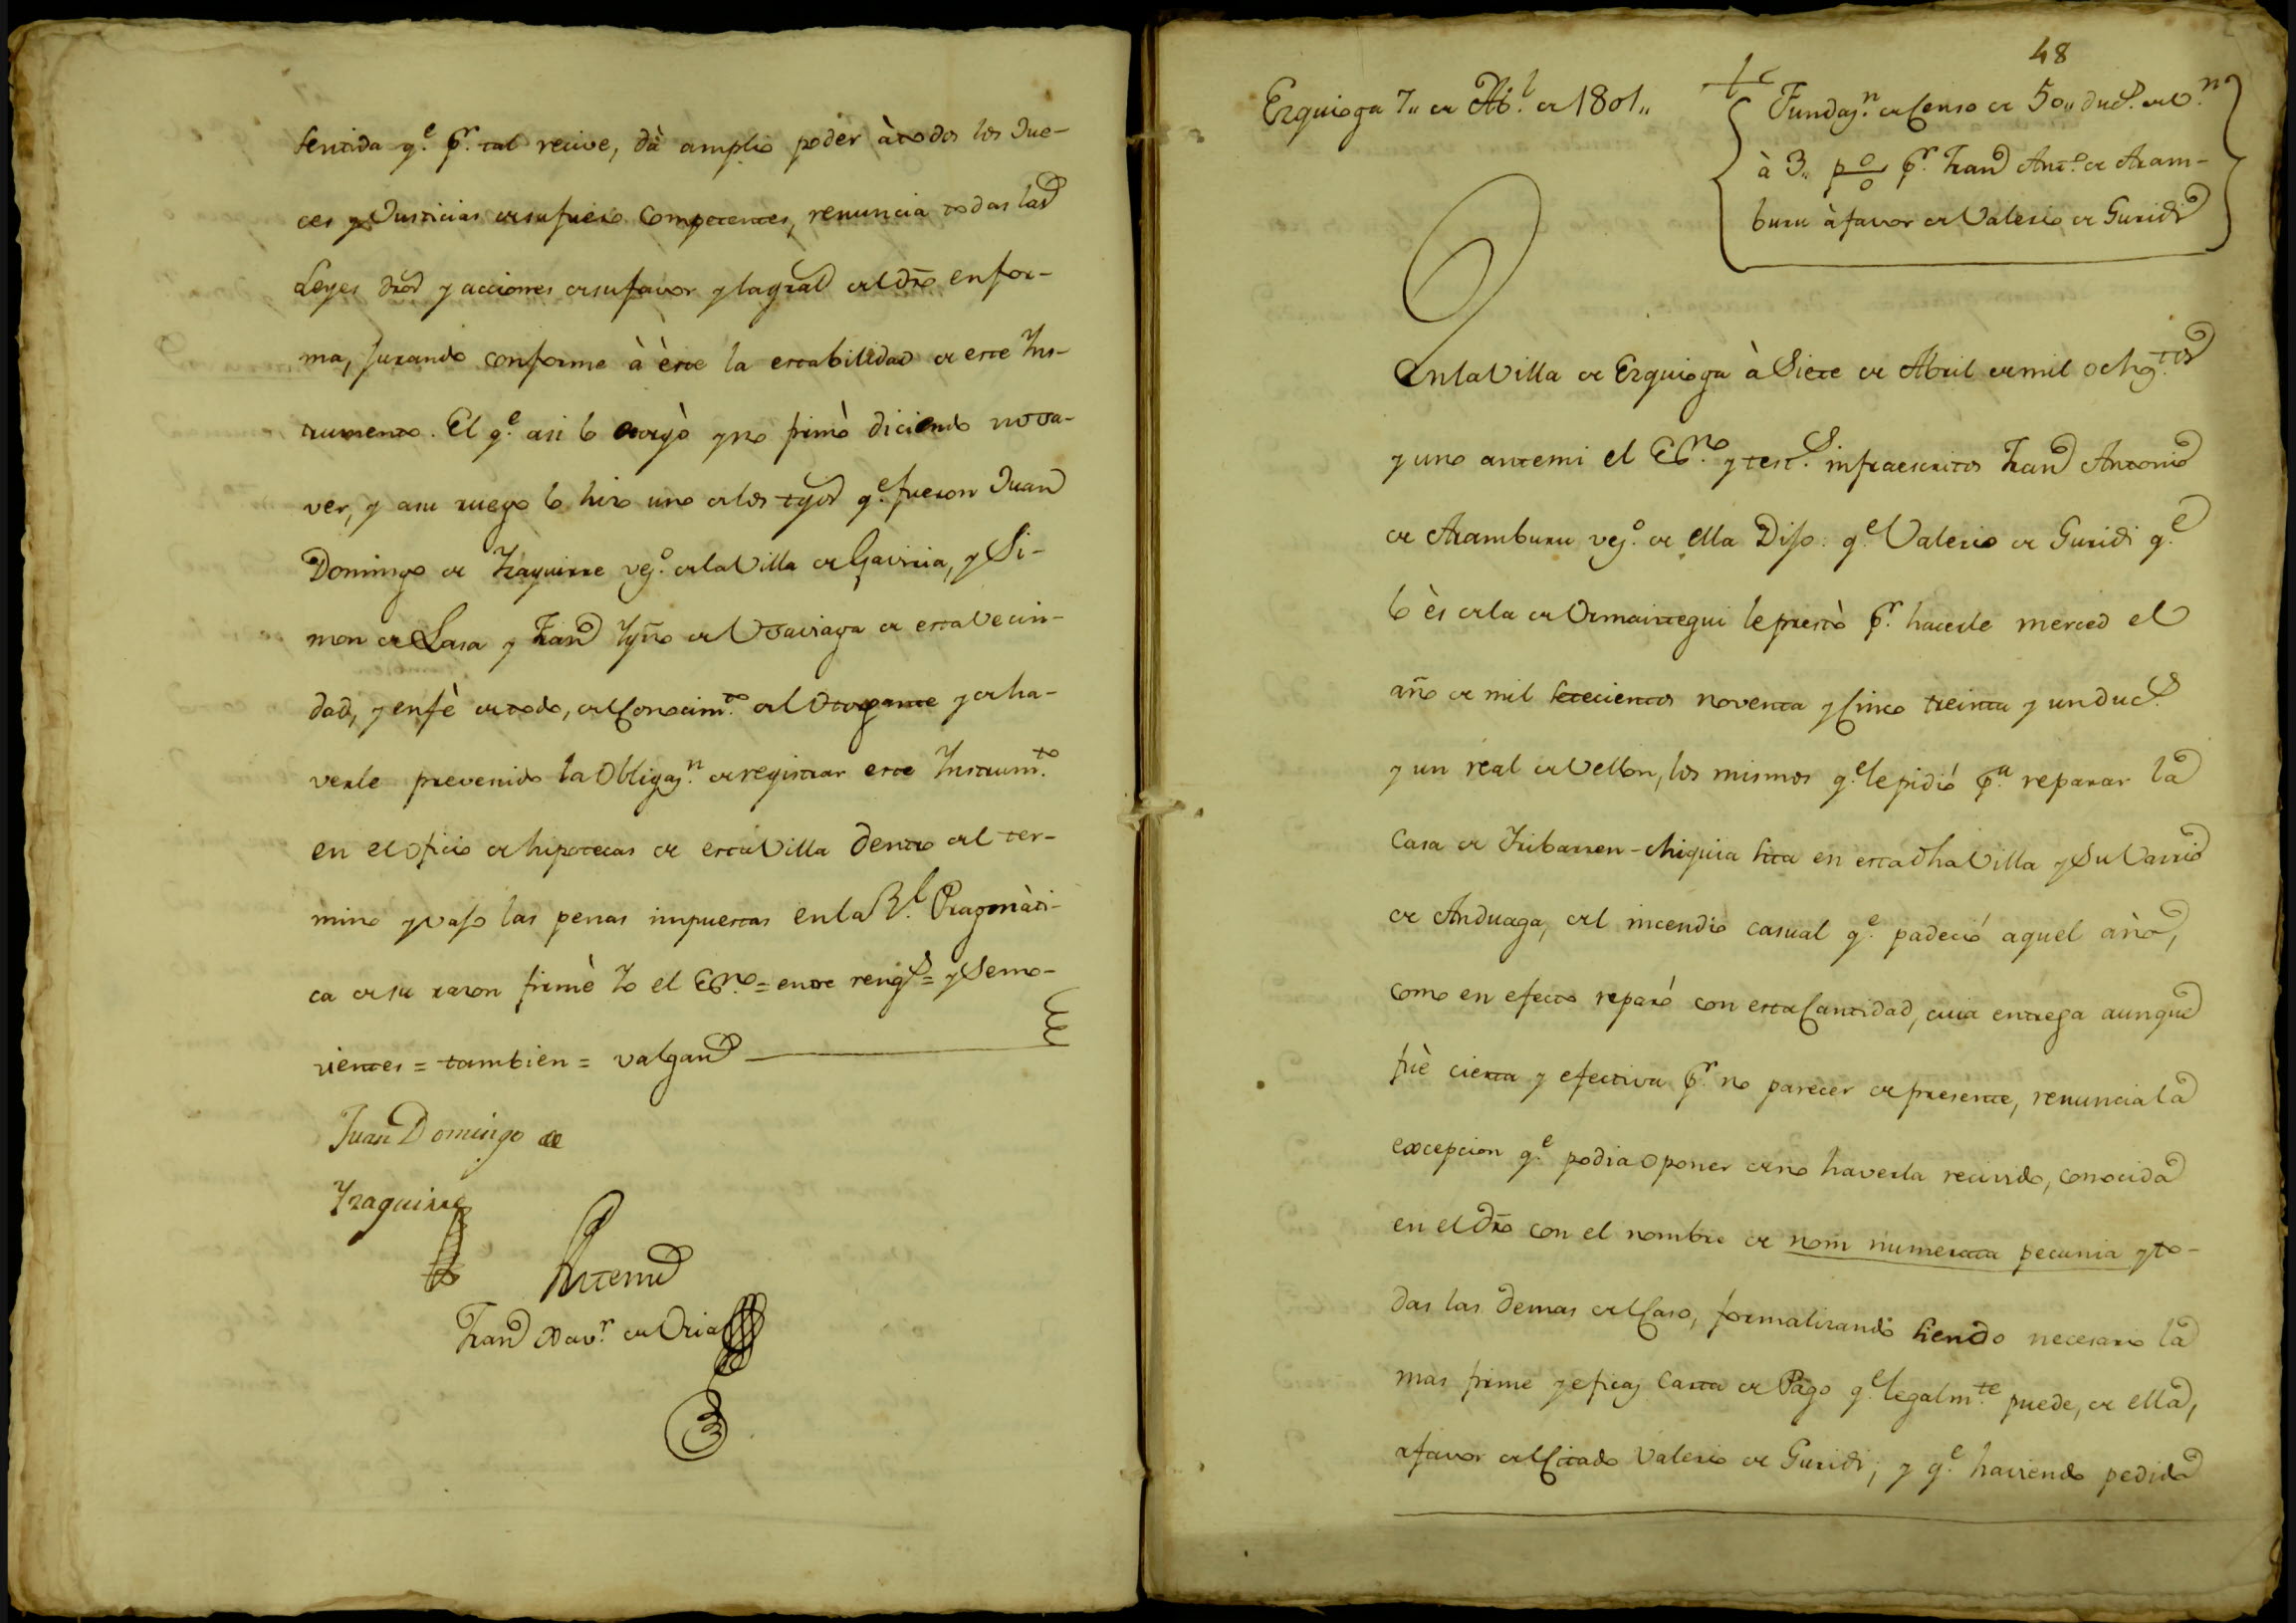 sentida q.e p.r tal recive, dà amplio poder à todos los Jue-
ces y Justicias de su fuero competentes, renuncia todas las
Leyes dros y acciones de su favor y la gral del dro en for-
ma, jurando conforme à èste la estabilidad de este Ins-
trumento. El q.e asi lo otorgò y no firmò diciendo no sa-
ver, y a su ruego lo hizo uno de los tgos q.e fueron Juan
Domingo de Yzaguirre vez.o de la Villa de Gaviria, y Si-
mon de Lasa y Fran.co Ygn.o de Usaviaga de esta vecin-
dad, y en fè de todo, del conocim.to del Otorgante y de ha-
verle prevenido la Obligaz.n de registrar este Instrum.to
en el oficio de hipotecas de esta Villa dentro del ter-
mino y vajo las penas impuestas en la R.l Pragmàti-
ca de su razon firmè Yo el Es.no = entre reng.s = y Semo-
vientes = tambien = valgan
Juan Domingo de
Yzaguirre
Antemi
Fran.co Xav.r de Oria
48
Ezquioga 7,, de Ab.l de 1801,,
Fundaz.n de Censo de 50,, duc.s de v.n
à 3,, p% p.r Fran.co Ant.o de Aram-
buru à favor de Valerio de Guridi
En la Villa de Ezquioga à Siete de Abril de mil ochoz.tos
y uno antemi el Es.no y test.s infraescritos Fran.co Antonio
de Aramburu vez.o de ella Dijo: q.e Valerio de Guridi q.e
lo ès de la de Ormaiztegui le prestò p.r hacerle merced el
año de mil setecientos noventa y Cinco treinta y un duc.s
y un real de Vellon, los mismos q.e le pidió p.a reparar la
Casa de Iribarren-chiquia sita en esta dha Villa y Su Varrio
de Anduaga, del incendio casual q.e padeció aquel año,
como en efecto reparó con esta Cantidad, cuia entrega aunque
fuè cierta y efectiva p.r no parecer de presente, renuncia la
excepcion q.e podia oponer de no haverla recivido, conocida
en el dro con el nombre de nom numerata pecunia y to-
das las demas del Caso, formalizando siendo necesario la
mas firme y eficaz Carta de Pago q.e legalm.te puede, de ella,
a favor del Citado Valerio de Guridi; y q.e haviendo pedido